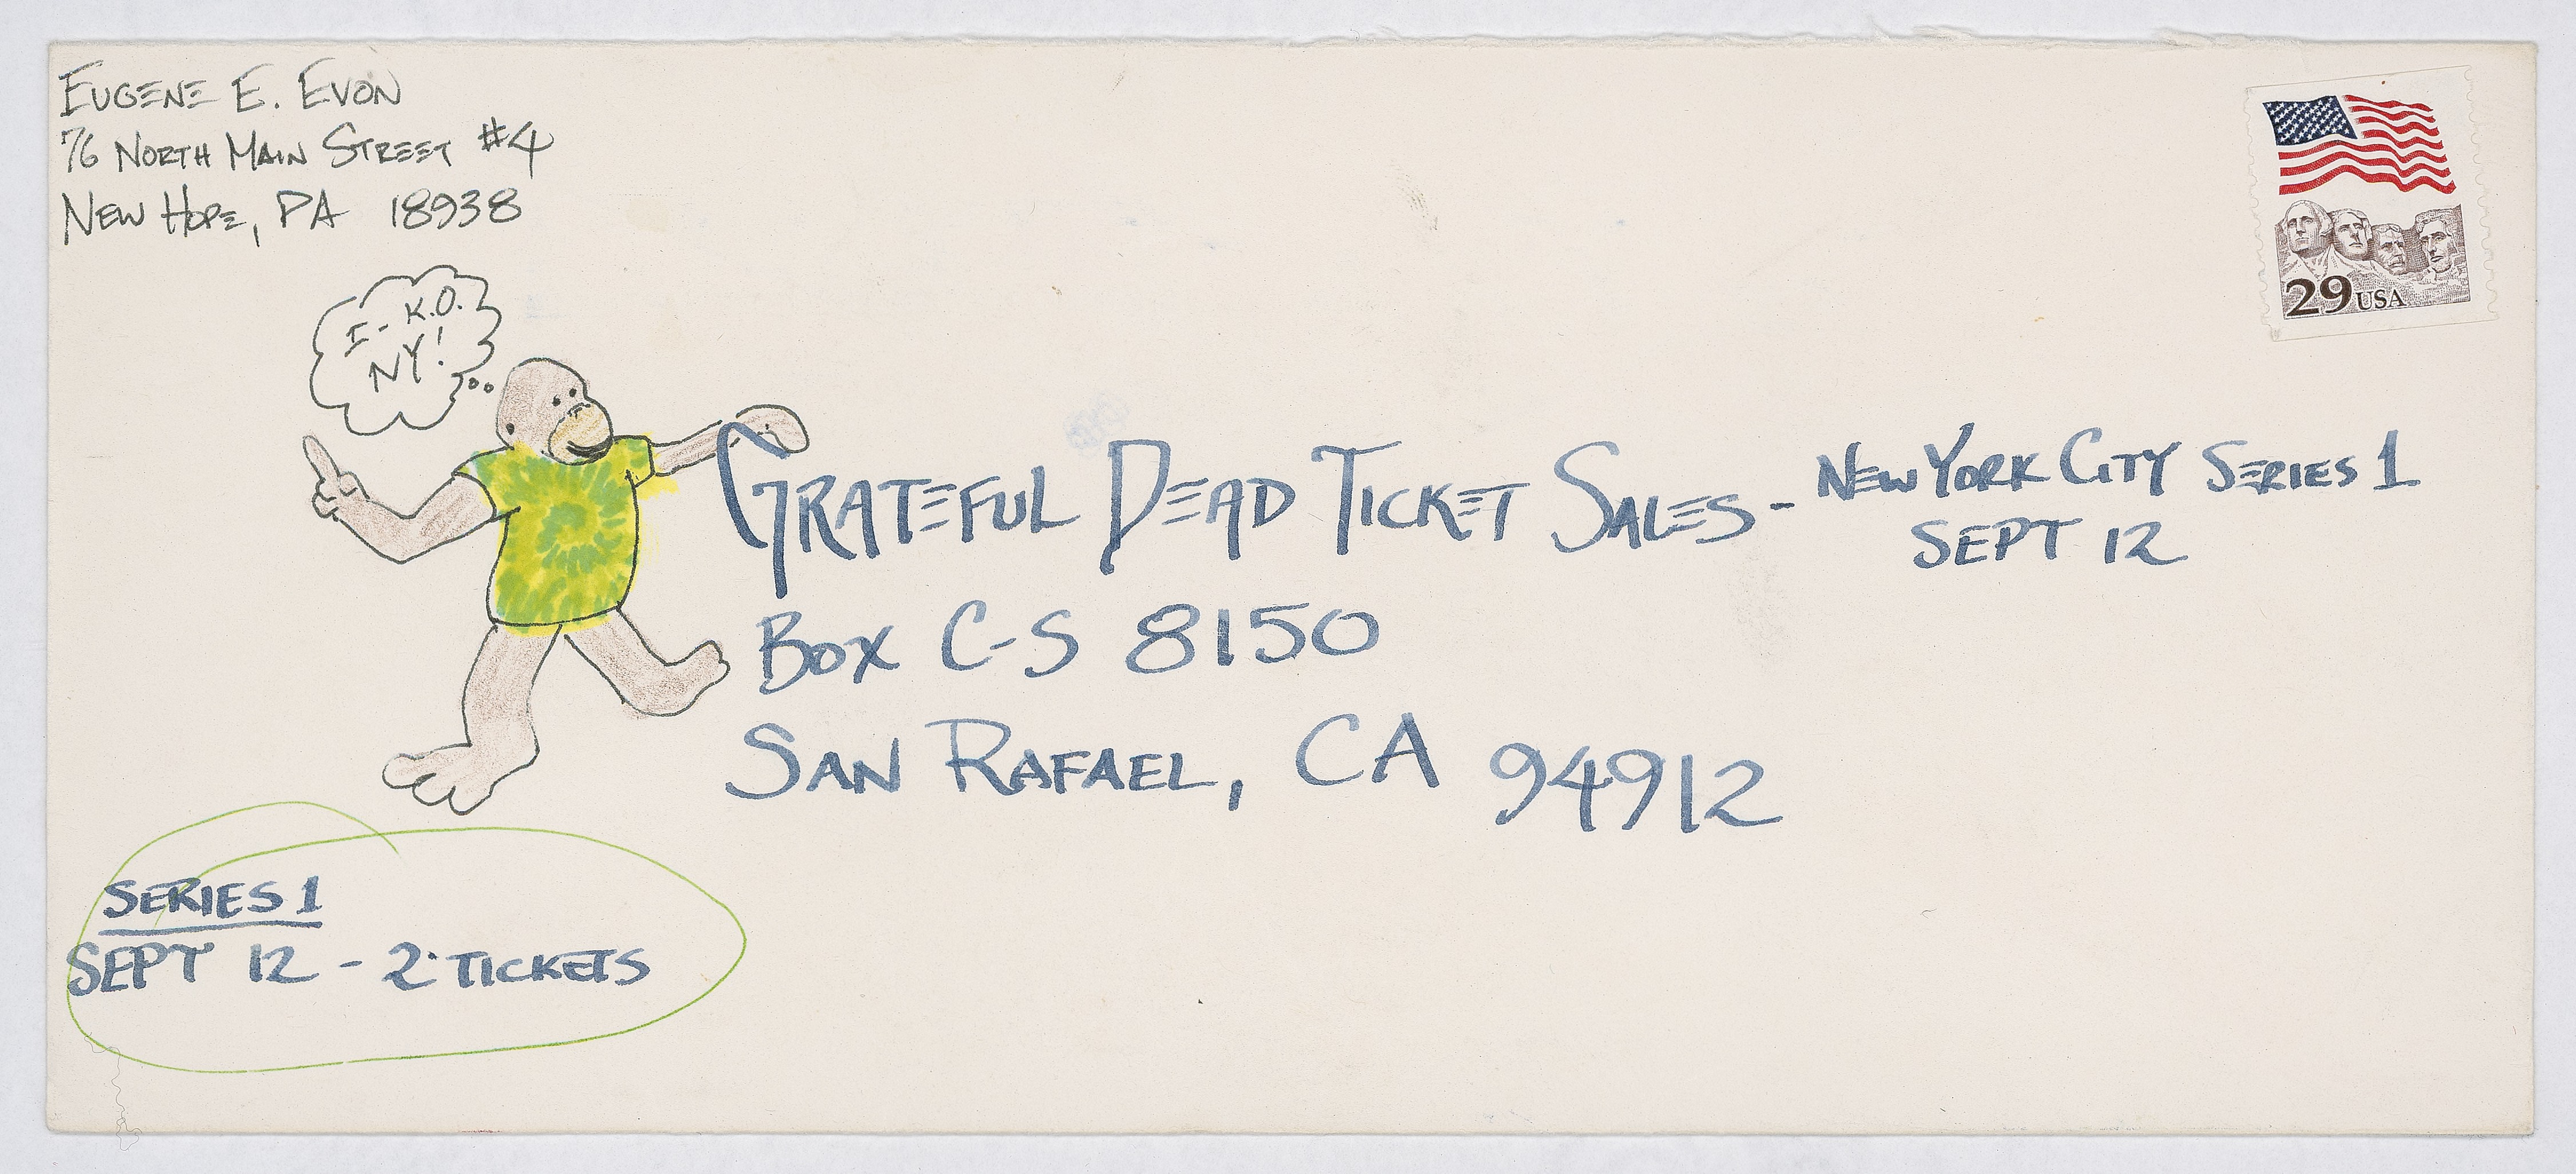 EUGENE E. EVON
76 NORTH MAIN STREET #4
NEW HOPE, PA 18938
29 USA
I-K.O.
NY!
GRATEFUL DEAD TICKET SALES - NEW YORK CITY SERIES 1
SEPT 12
BOX C-S 8150
SAN RAFAEL, CA 94912
SERIES 1
SEPT 12 - 2 TICKETS